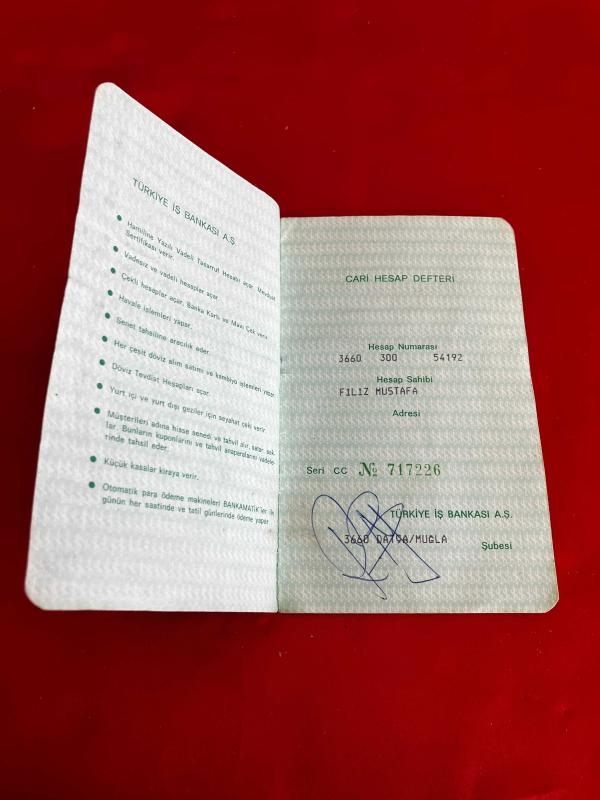 TÜRKİYE İŞ BANKASI A.Ş.
● Hamiline Yazılı Vadeli Tasarruf Hesabı açar Mevduat
Sertifikası verir.
● Vadesiz ve vadeli hesaplar açar.
● Çekli hesaplar açar, Banka Kartı ve Mavi Çek verir.
● Havale işlemleri yapar.
● Senet tahsiline aracılık eder.
● Her çeşit döviz alım satımı ve kambiyo işlemleri yapar.
● Döviz Tevdiat Hesapları açar.
● Yurt içi ve yurt dışı geziler için seyahat çeki verir.
● Müşterileri adına hisse senedi ve tahvil alır, satar, sak-
lar. Bunların kuponlarını ve tahvil anaparalarını vadele-
rinde tahsil eder.
● Küçük kasalar kiraya verir.
● Otomatik para ödeme makineleri BANKAMATİK'ler ile
günün her saatinde ve tatil günlerinde ödeme yapar.
CARİ HESAP DEFTERİ
Hesap Numarası
3660 300 54192
Hesap Sahibi
FILIZ MUSTAFA
Adresi
Seri CC № 717226
TÜRKİYE İŞ BANKASI A.Ş.
3660 DATÇA/MUGLA
Şubesi